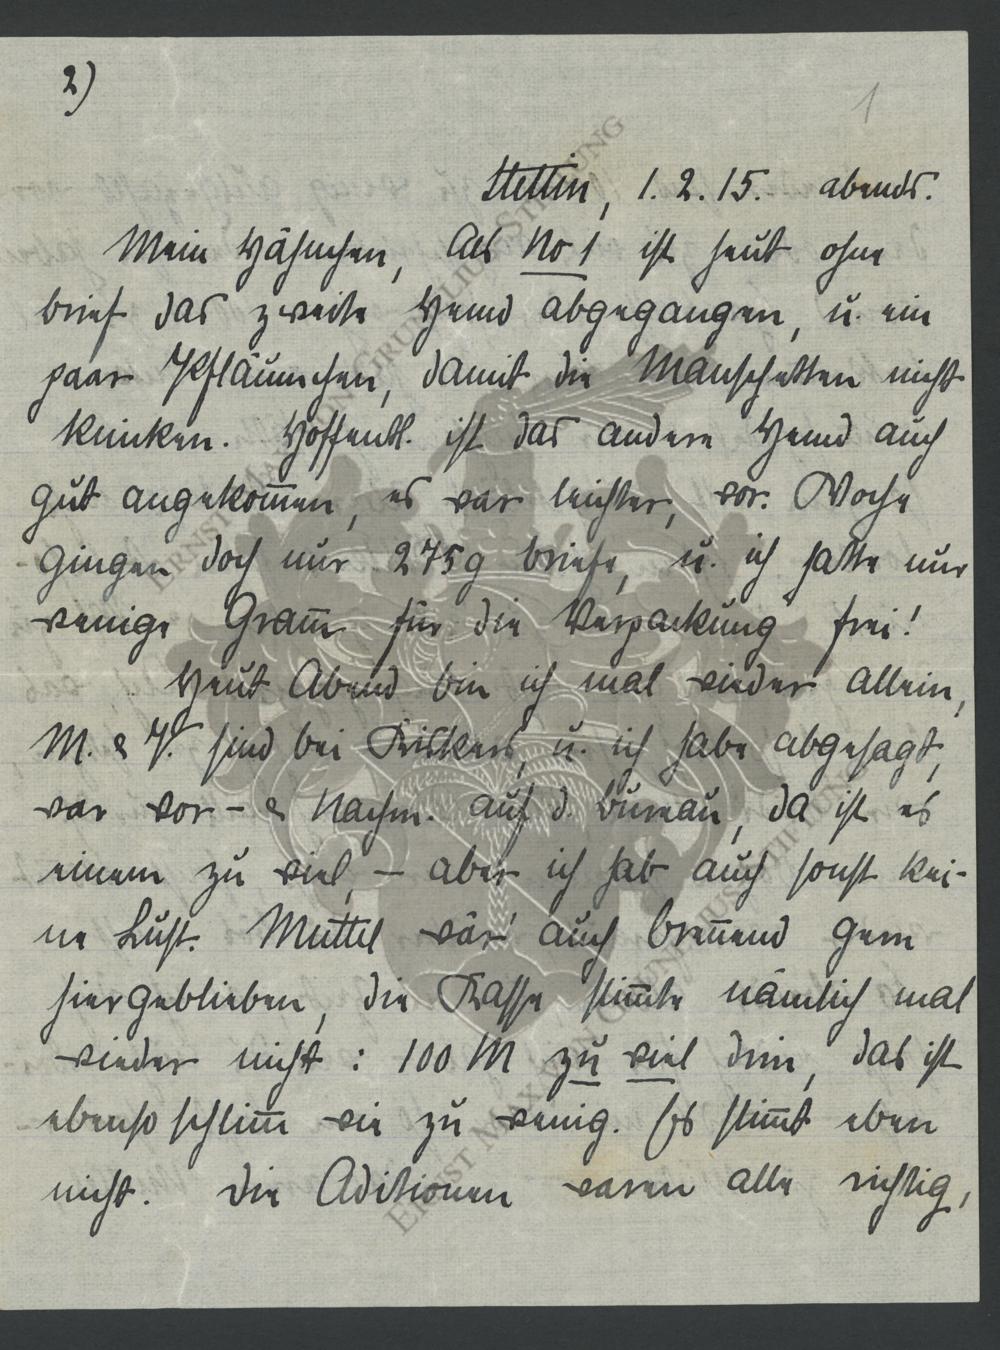 2)
1
Stettin, 1.2.15. abends.
Mein Hähnchen, Als No 1 ist heut ohne
brief das zweite Hemd abgegangen, u. ein
paar Pfläumchen, damit die Manschetten nicht
knicken. Hoffentl. ist das andere Hemd auch
gut angekom̄en, es war leichter, vor. Woche
gingen doch nur 275g briefe, u. ich hatte nur
wenige Gram̄ für die Verpackung frei!
Heut Abend bin ich mal wieder allein,
M. & V. sind bei, u. ich habe abgesagt,
war vor- & Nachm. auf d. büreau, da ist es
einem zu viel, – aber ich hab auch sonst kei-
ne Lust. Muttel wär' auch bren̄end gern
hiergeblieben, die Kasse stim̄te nämlich mal
wieder nicht: 100 M zu viel drin, das ist
ebenso schlim̄ wie zu wenig. Es stim̄t eben
nicht. Die Aditionen waren alle richtig,
ERNST MAX VON GRUNELIUS-STIFTUNG
ERNST MAX VON GRUNELIUS-STIFTUNG